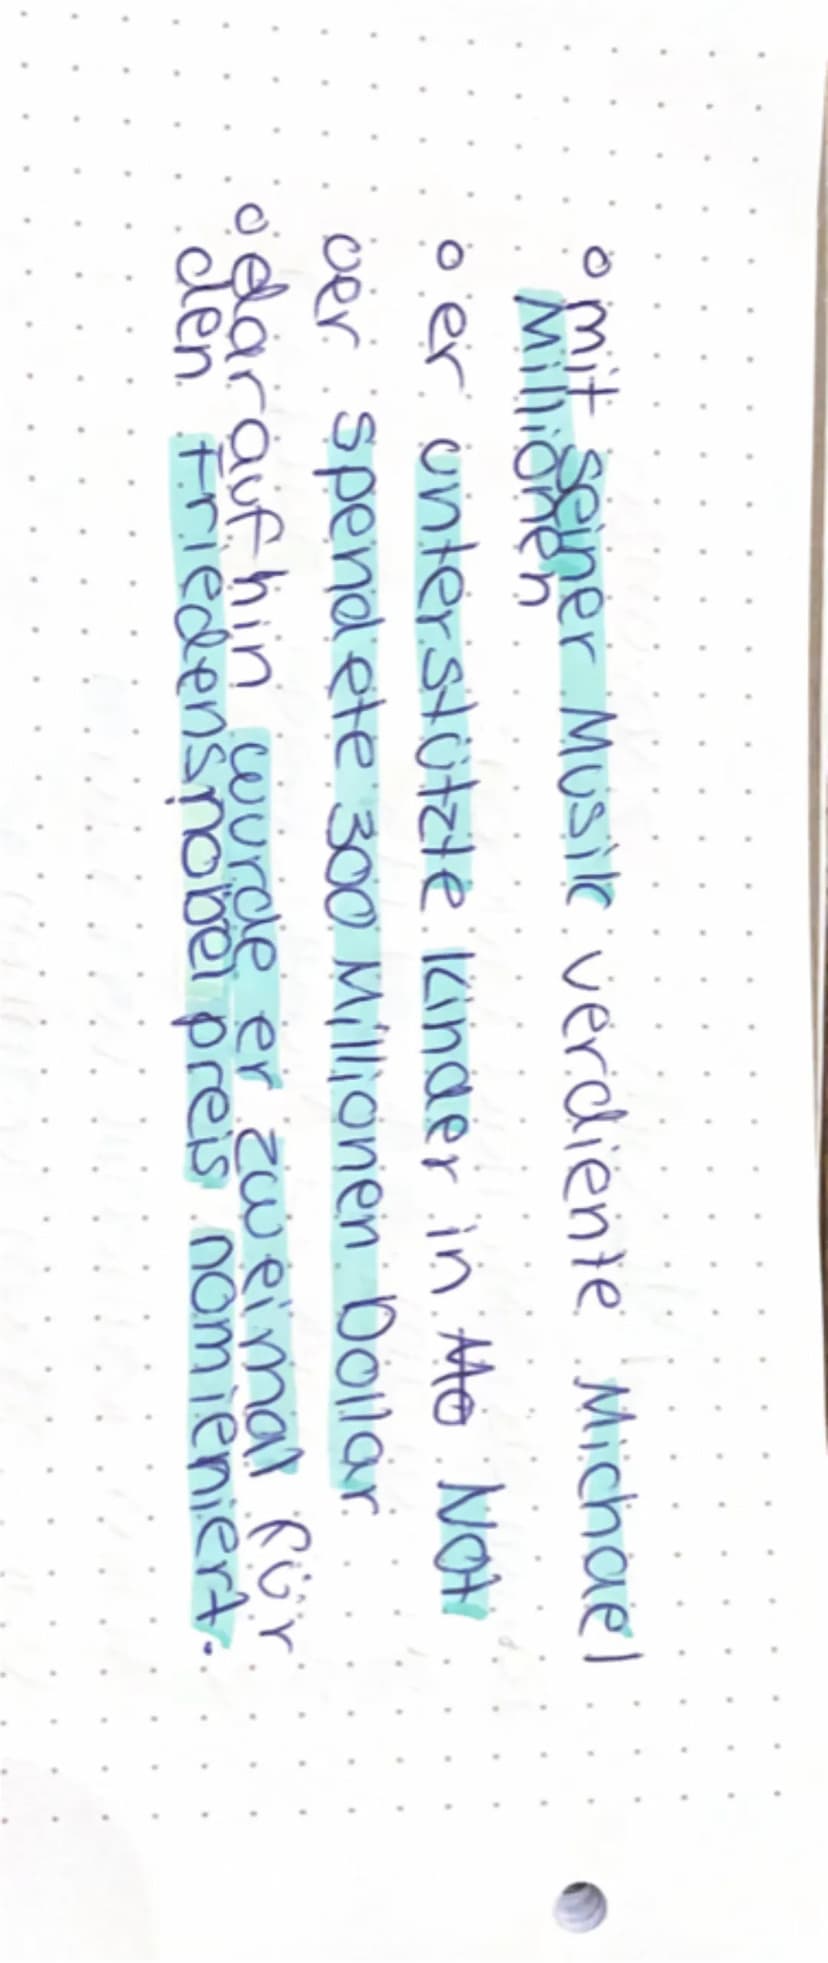 o mit seiner Musik verdiente Michael
Millionen
o er unterstützte kinder in N̶o̶ Not
oer spendete 300 Millionen Dollar
o darauf hin wurde er zweimal für
den Friedensnobelpreis nomieniert.